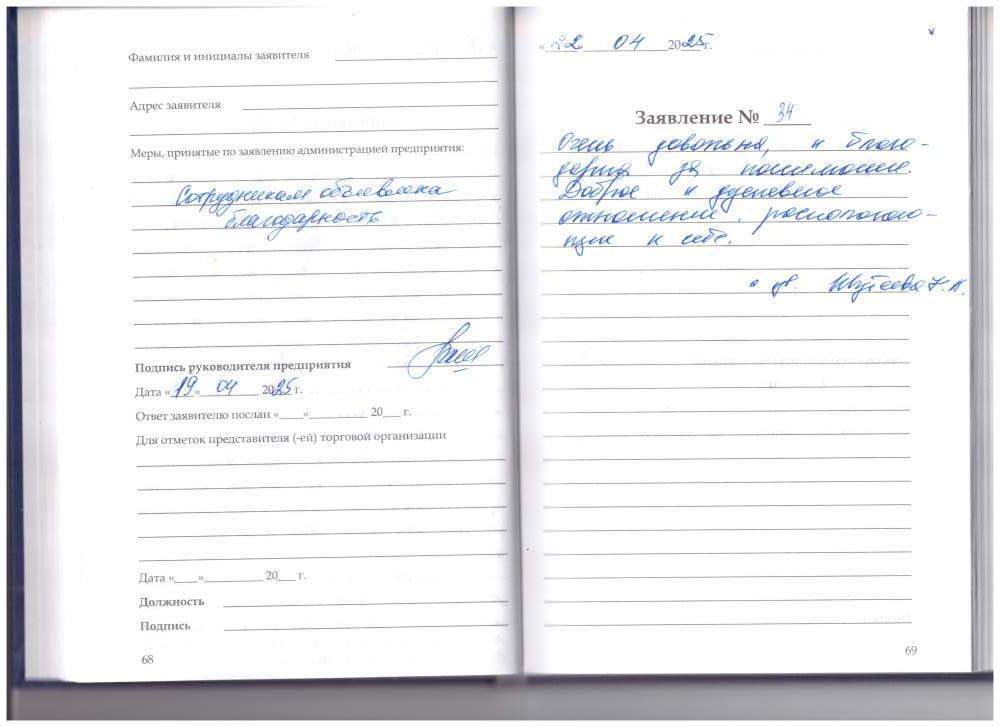 Фамилия и инициалы заявителя
Адрес заявителя
Меры, принятые по заявлению администрацией предприятия:
Сотрудникам объявлена
благодарность
Подпись руководителя предприятия
Дата «19» 04 2025 г.
Ответ заявителю послан «____»__________ 20___ г.
Для отметок представителя (-ей) торговой организации
Дата «____»__________ 20___ г.
Должность
Подпись
68
«22 04 2025г.
Заявление № 34
Очень довольна, и благо-
дарна за
Доброе и душевное
отношение, распологаю-
щие к себе.
69